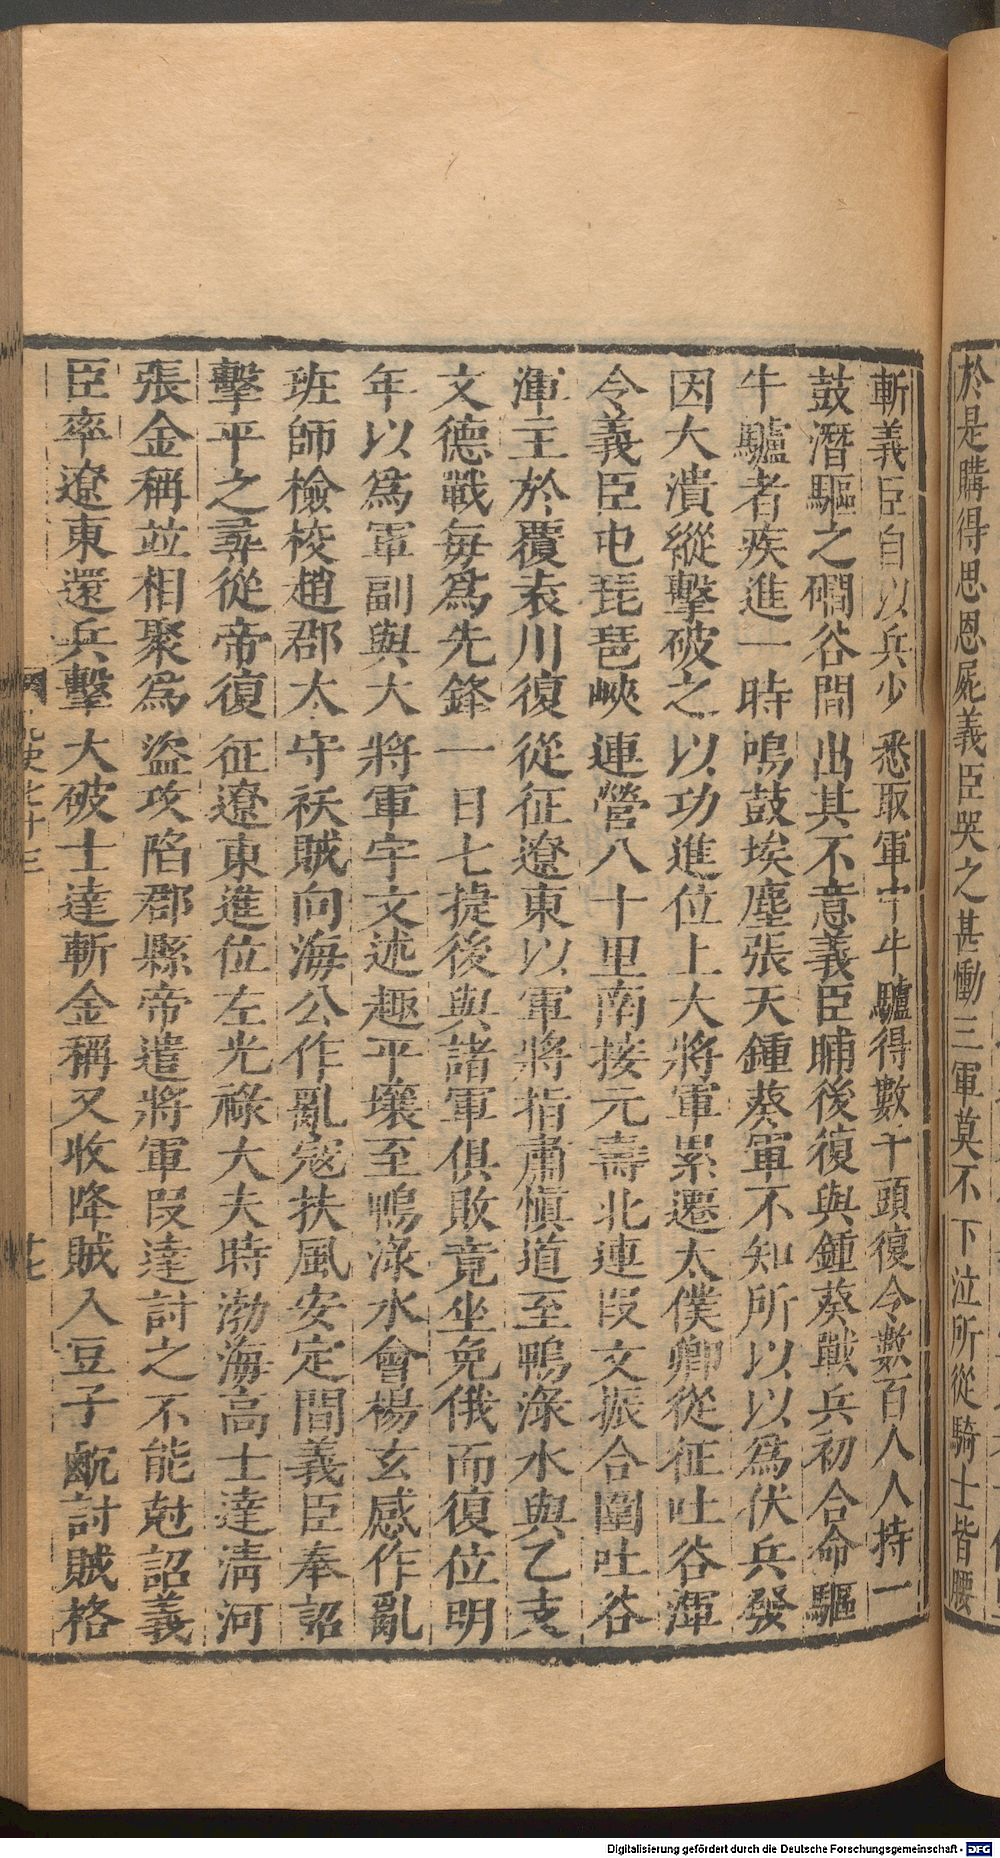 於是購得思恩屍義臣哭之甚慟三軍莫不下泣所從騎士皆腰
斬義臣自以兵少悉取軍中牛驢得數千頭復令數百人人持一
鼓潛驅之磵谷間出其不意義臣晡後復與鍾葵戰兵初合命驅
牛驢者疾進一時鳴鼓埃塵張天鍾葵軍不知所以以爲伏兵發
因大潰縱擊破之以功進位上大將軍累遷太僕卿從征吐谷渾
令義臣屯琵琶峽連營八十里南接元壽北連叚文振合圍吐谷
渾主於覆袁川復從征遼東以軍將指肅愼道至鴨淥水與乙支
文德戰每爲先鋒一日七捷後與諸軍俱敗竟坐免俄而復位明
年以爲軍副與大將軍宇文述趣平壤至鴨淥水會楊玄感作亂
班師檢校趙郡太守祅賊向海公作亂寇扶風安定間義臣奉詔
擊平之尋從帝復征遼東進位左光祿大夫時渤海高士達淸河
張金稱竝相聚爲盜攻陷郡縣帝遣將軍叚達討之不能尅詔義
臣率遼東還兵擊大破士達斬金稱又收降賊入豆子䴚討賊格
史七十三
十七
Digitalisierung gefördert durch die Deutsche Forschungsgemeinschaft - DFG